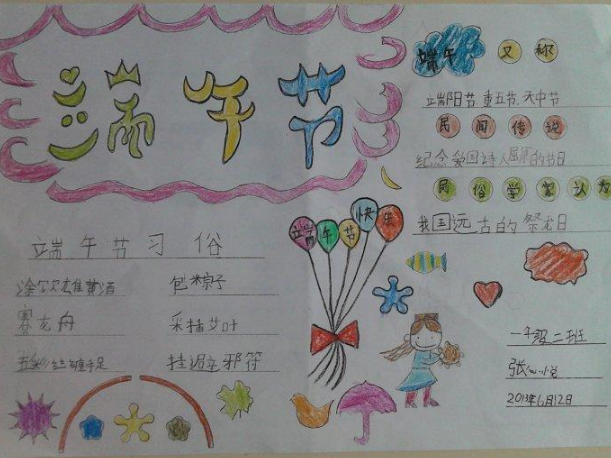 端午节
端午 又称
端阳节、重五节、天中节
民间传说
纪念爱国诗人屈原的节日
民俗学家认为
我国远古的祭龙日
端午节快乐
端午节习俗
涂尔饮雄黄酒 包粽子
赛龙舟 采插艾叶
五彩丝缠手足 挂避邪符
一年级二班
张
2013年6月12日